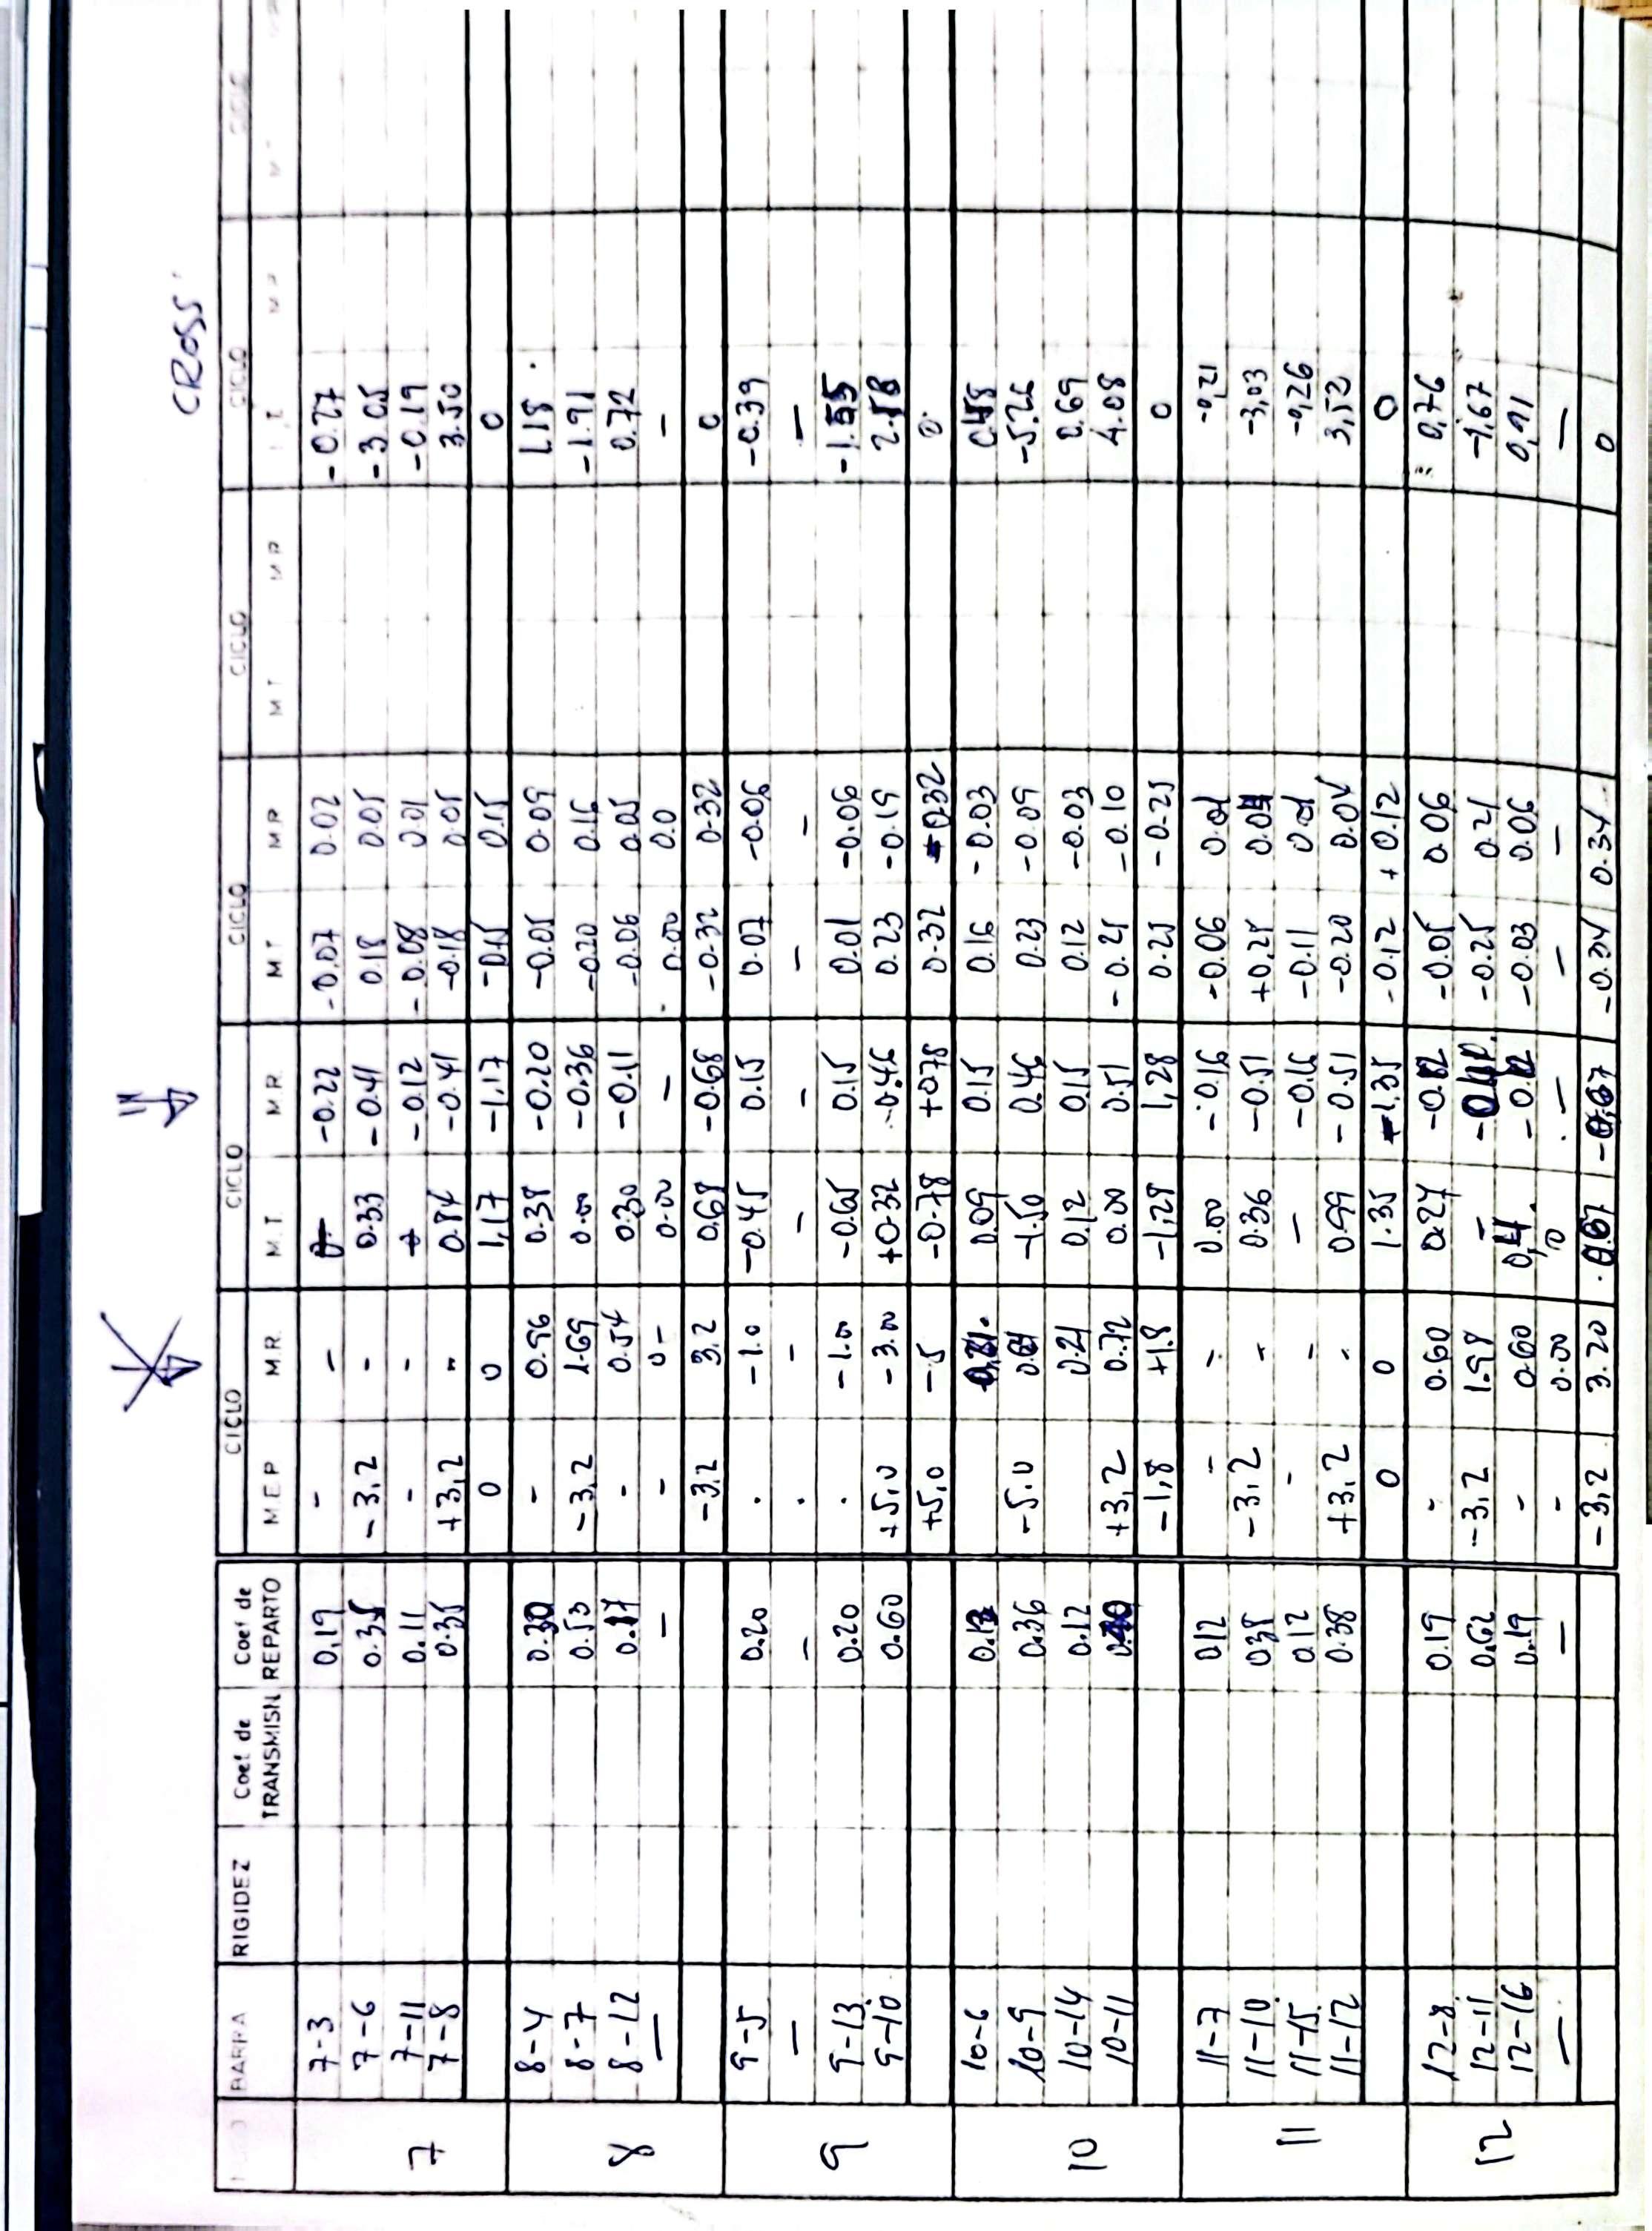 CROSS
BARRA RIGIDEZ Coef de TRANSMISN. Coef de REPARTO CICLO CICLO CICLO CICLO CICLO
M.E.P M.R. M.T. M.R. M T M.R M T M R
7
7-3 0.19 - - -0.22 -0.07 0.02 -0.27
7-6 0.35 -3,2 - 0.33 -0.41 0.18 0.05 -3.05
7-11 0.11 - - -0.12 -0.08 0.01 -0.19
7-8 0.35 +3,2 - 0.84 -0.41 -0.18 0.05 3.50
0 0 1,17 -1,17 -0.15 0.15 0
8
8-4 0.30 - 0.96 0.38 -0.20 -0.05 0.09 1.18
8-7 0.53 -3,2 1.69 0.00 -0.36 -0.20 0.16 -1.91
8-12 0.17 - 0.54 0.30 -0.11 -0.06 0.05 0.72
— — - 0- 0.00 — 0.00 0.0 —
-3,2 3.2 0.68 -0.68 -0.32 0.32 0
9
9-5 0.20 . -1.0 -0.45 0.15 0.07 -0.06 -0.39
— - . - - - - - —
9-13 0.20 . -1.00 -0.65 0.15 0.01 -0.06 -1.55
9-10 0.60 +5,0 -3.00 +0.32 0.46 0.23 -0.19 2.58
+5,0 -5 -0.78 +0.78 0.32 -0.32 0
10
10-6 0.13 0.09 0.15 0.16 -0.03 0.48
10-9 0.36 -5.0 -1.50 0.46 0.23 -0.09 -5.26
10-14 0.12 0.21 0.12 0.15 0.12 -0.03 0.69
10-11 0.40 +3,2 0.72 0.00 0.51 -0.25 -0.10 4.08
-1,8 +1.8 -1,28 1,28 0.25 -0.25 0
11
11-7 0.12 - - 0.00 -0.16 -0.06 0.01 -0,21
11-10 0.38 -3,2 - 0.36 -0.51 +0.25 0.04 -3,03
11-15 0.12 - - — -0.16 -0.11 0.01 -0,26
11-12 0.38 +3,2 - 0.99 -0.51 -0.20 0.04 3,52
0 0 1.35 -1,35 -0.12 +0.12 0
12
12-8 0.19 - 0.60 0.27 -0.05 0.06 0,76
12-11 0.62 -3,2 1.98 - -0.25 0.21 -1,67
12-16 0.19 - 0.60 -0.03 0.06 0,91
— — - 0.00 0 - - - —
-3,2 3.20 0.67 -0.67 -0.34 0.34 0